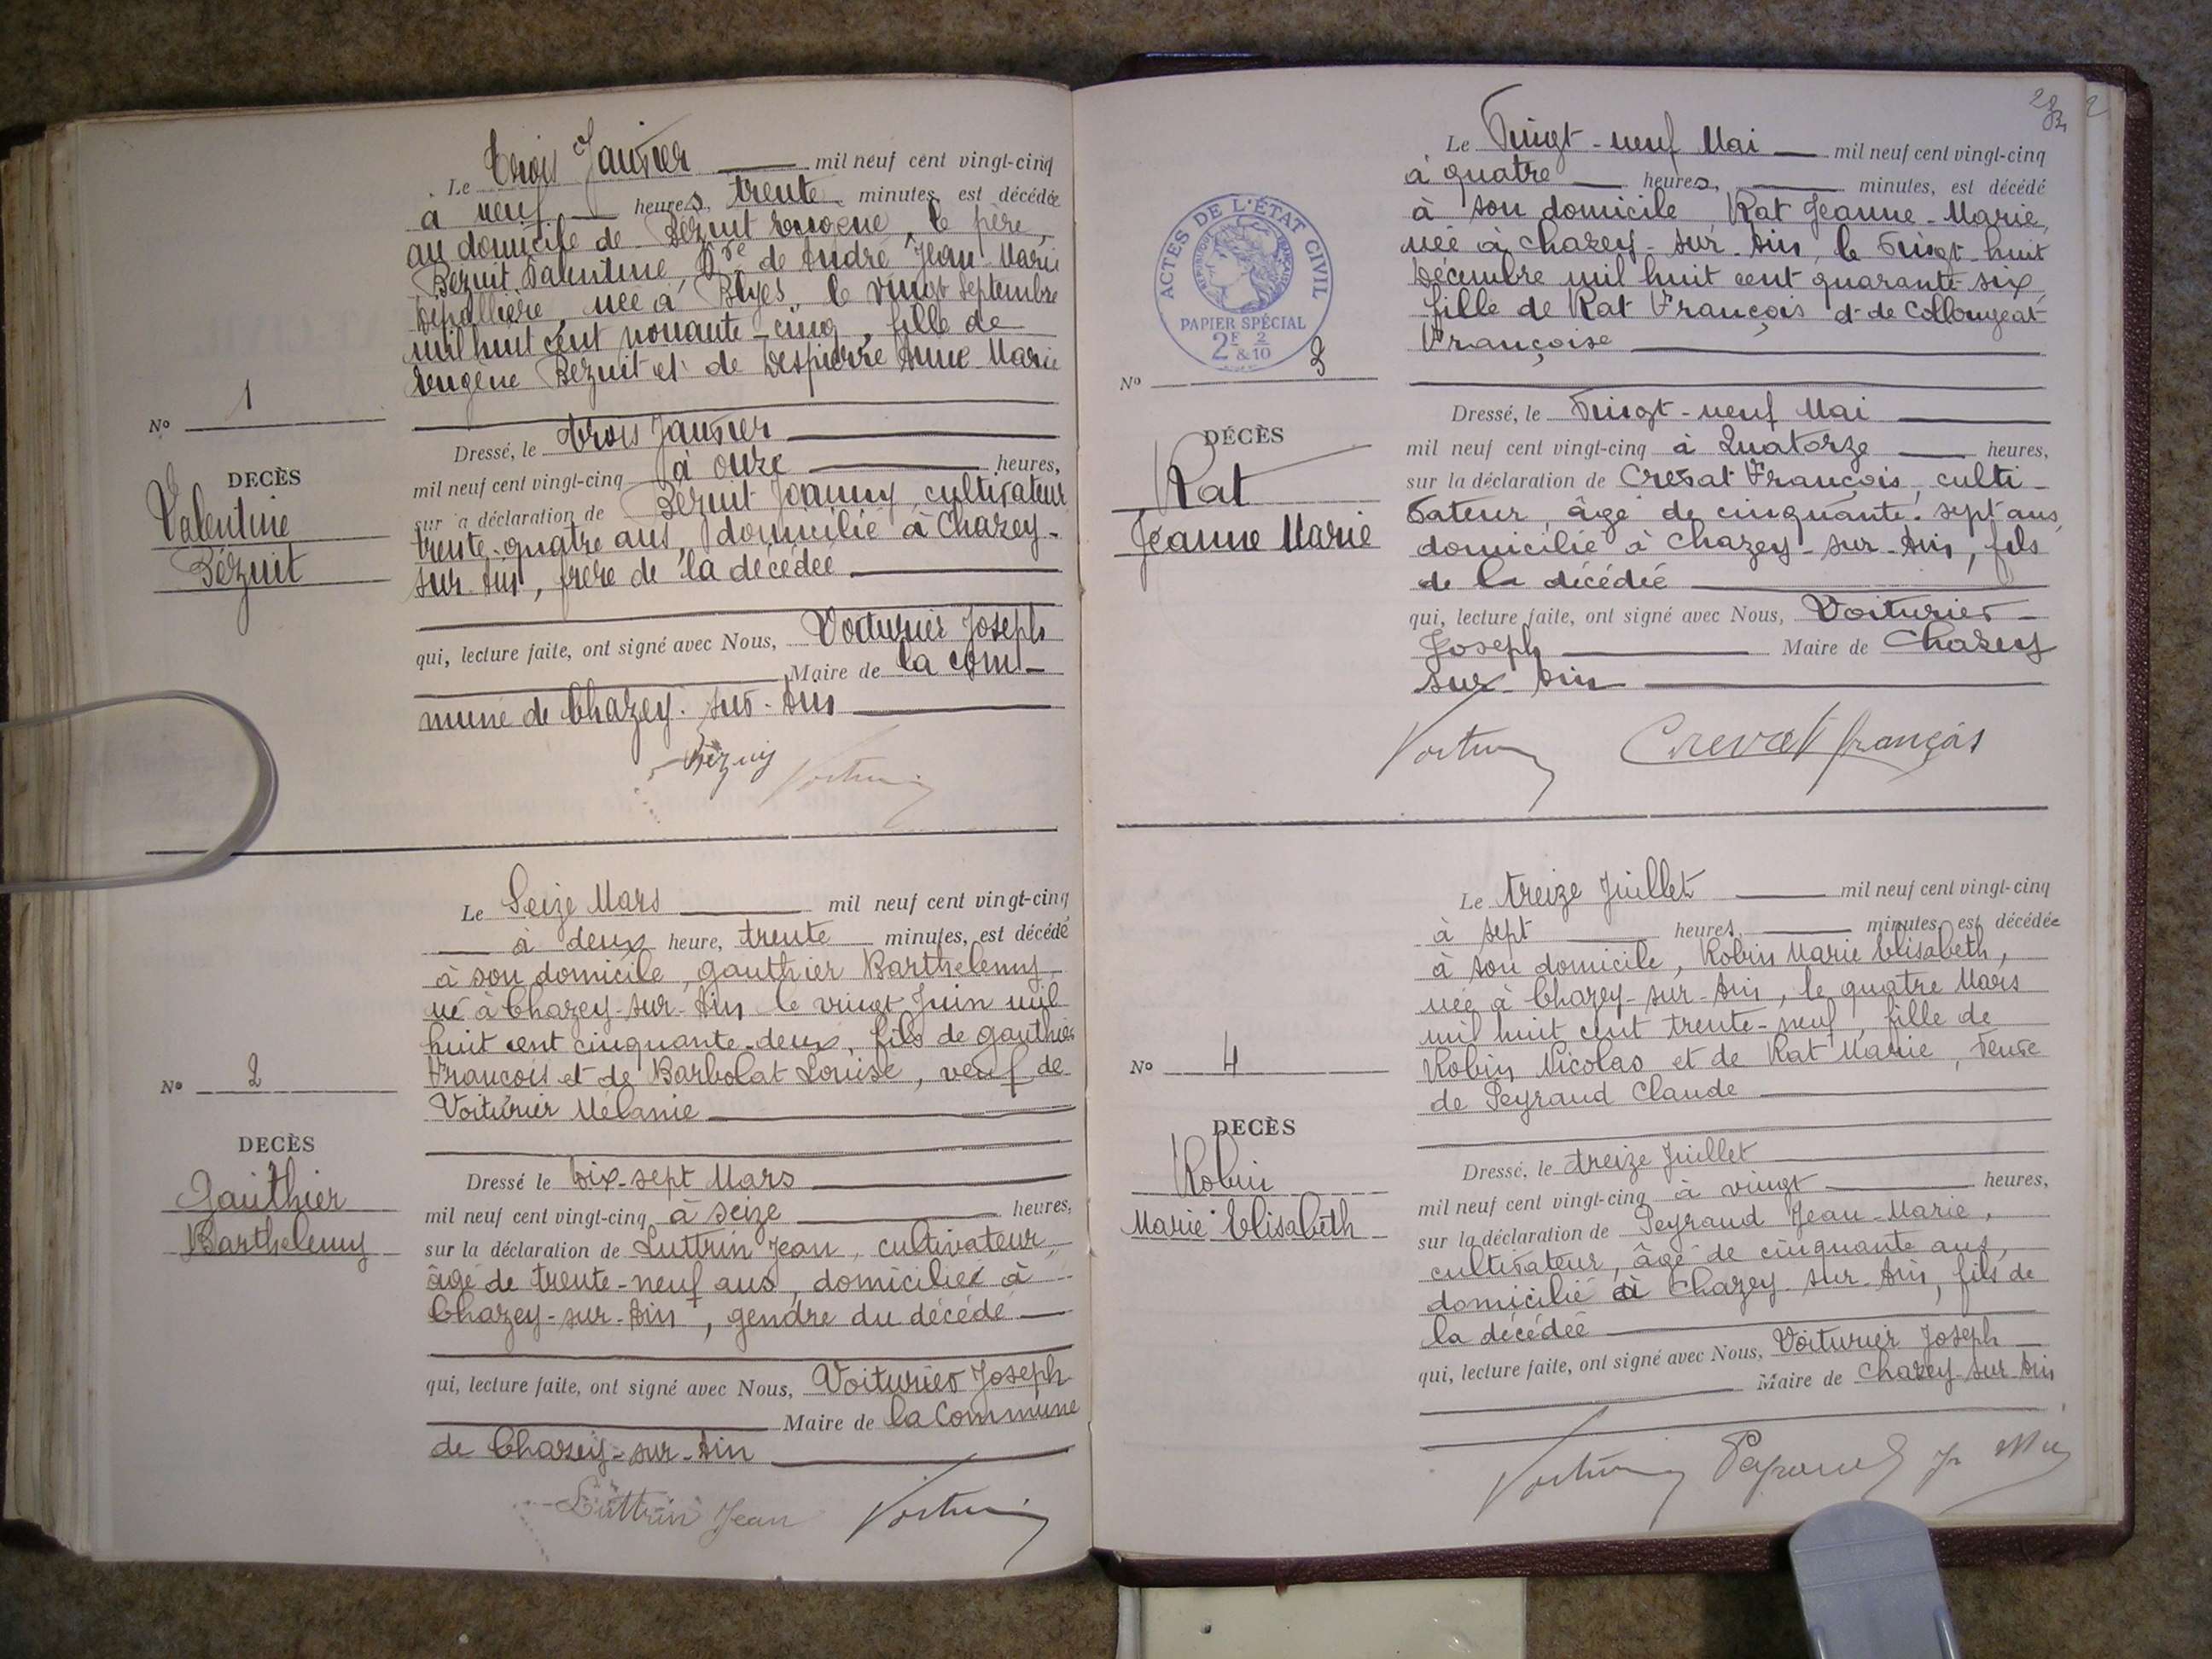 Le trois Janvier mil neuf cent vingt-cinq
à neuf heures, trente minutes, est décédée
au domicile de Bézuit Eugène, le père,
Bézuit Valentine, de André Jean Marie
née à Blyes, le vingt Septembre
mil huit cent nonante-cinq, fille de
Eugène Bézuit et de Despierre Anne Marie
Nº 1
DECÈS
Valentine
Bézuit
Dressé, le trois Janvier
mil neuf cent vingt-cinq à onze heures,
sur la déclaration de Bézuit Joanny, cultivateur
trente-quatre ans, domicilié à Chazey-
sur-Ain, frère de la décédée
qui, lecture faite, ont signé avec Nous, Voiturier Joseph
Maire de la com-
mune de Chazey-sur-Ain
Bézuit Voiturier
Le Seize Mars mil neuf cent vingt-cinq
à deux heure, trente minutes, est décédé
à son domicile, Gauthier Barthelemy
né à Chazey-sur-Ain le vingt Juin mil
huit cent cinquante-deux, fils de Gauthier
François et de Barbolat Louise, veuf de
Voiturier Mélanie
Nº 2
DECÈS
Gauthier
Barthelemy
Dressé le Dix-sept Mars
mil neuf cent vingt-cinq à seize heures,
sur la déclaration de Luttrin Jean, cultivateur,
âgé de trente-neuf ans, domicilié à
Chazey-sur-Ain, gendre du décédé
qui, lecture faite, ont signé avec Nous, Voiturier Joseph
Maire de la Commune
de Chazey-sur-Ain
Luttrin Jean Voiturier
2
ACTES DE L'ÉTAT CIVIL
RÉPUBLIQUE FRANÇAISE
PAPIER SPÉCIAL
2F 2/10
&
Le Vingt-neuf Mai mil neuf cent vingt-cinq
à quatre heures, minutes, est décédé
à son domicile Rat Jeanne-Marie,
née à Chazey-sur-Ain, le Vingt-huit
Décembre mil huit cent quarante-six,
fille de Rat François et de Collougeat
Françoise
Nº 3
DÉCÈS
Rat
Jeanne Marie
Dressé, le Vingt-neuf Mai
mil neuf cent vingt-cinq à Quatorze heures,
sur la déclaration de Crevat François, culti-
vateur, âgé de cinquante-sept ans,
domicilié à Chazey-sur-Ain, fils
de la décédée
qui, lecture faite, ont signé avec Nous, Voiturier
Joseph Maire de Chazey
sur-Ain
Voiturier Crevat françois
Le treize Juillet mil neuf cent vingt-cinq
à sept heures, minutes, est décédée
à son domicile, Robin Marie Elisabeth,
née à Chazey-sur-Ain, le quatre Mars
mil huit cent trente-neuf, fille de
Robin Nicolas et de Rat Marie, veuve
de Peyraud Claude
Nº 4
DECÈS
Robin
Marie Elisabeth
Dressé, le treize Juillet
mil neuf cent vingt-cinq à vingt heures,
sur la déclaration de Peyraud Jean-Marie,
cultivateur, âgé de cinquante ans,
domicilié à Chazey-sur-Ain, fils de
la décédée
qui, lecture faite, ont signé avec Nous, Voiturier Joseph
Maire de Chazey-sur-Ain
Voiturier Peyraud Jn Mie